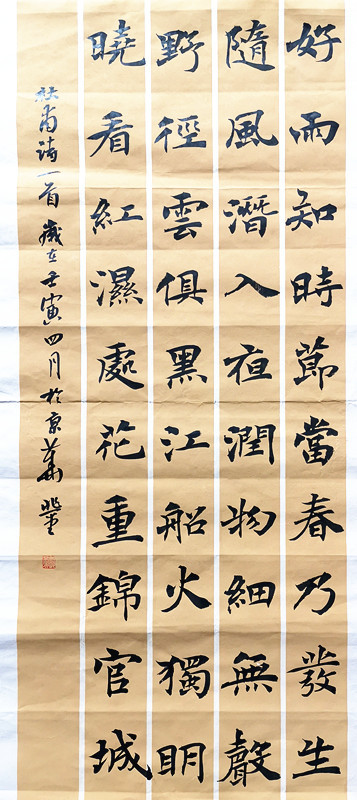 好雨知時節當春乃發生
隨風潛入夜潤物細無聲
野徑雲俱黑江船火獨明
曉看紅濕處花重錦官城
杜甫詩一首歲在壬寅四月於京華